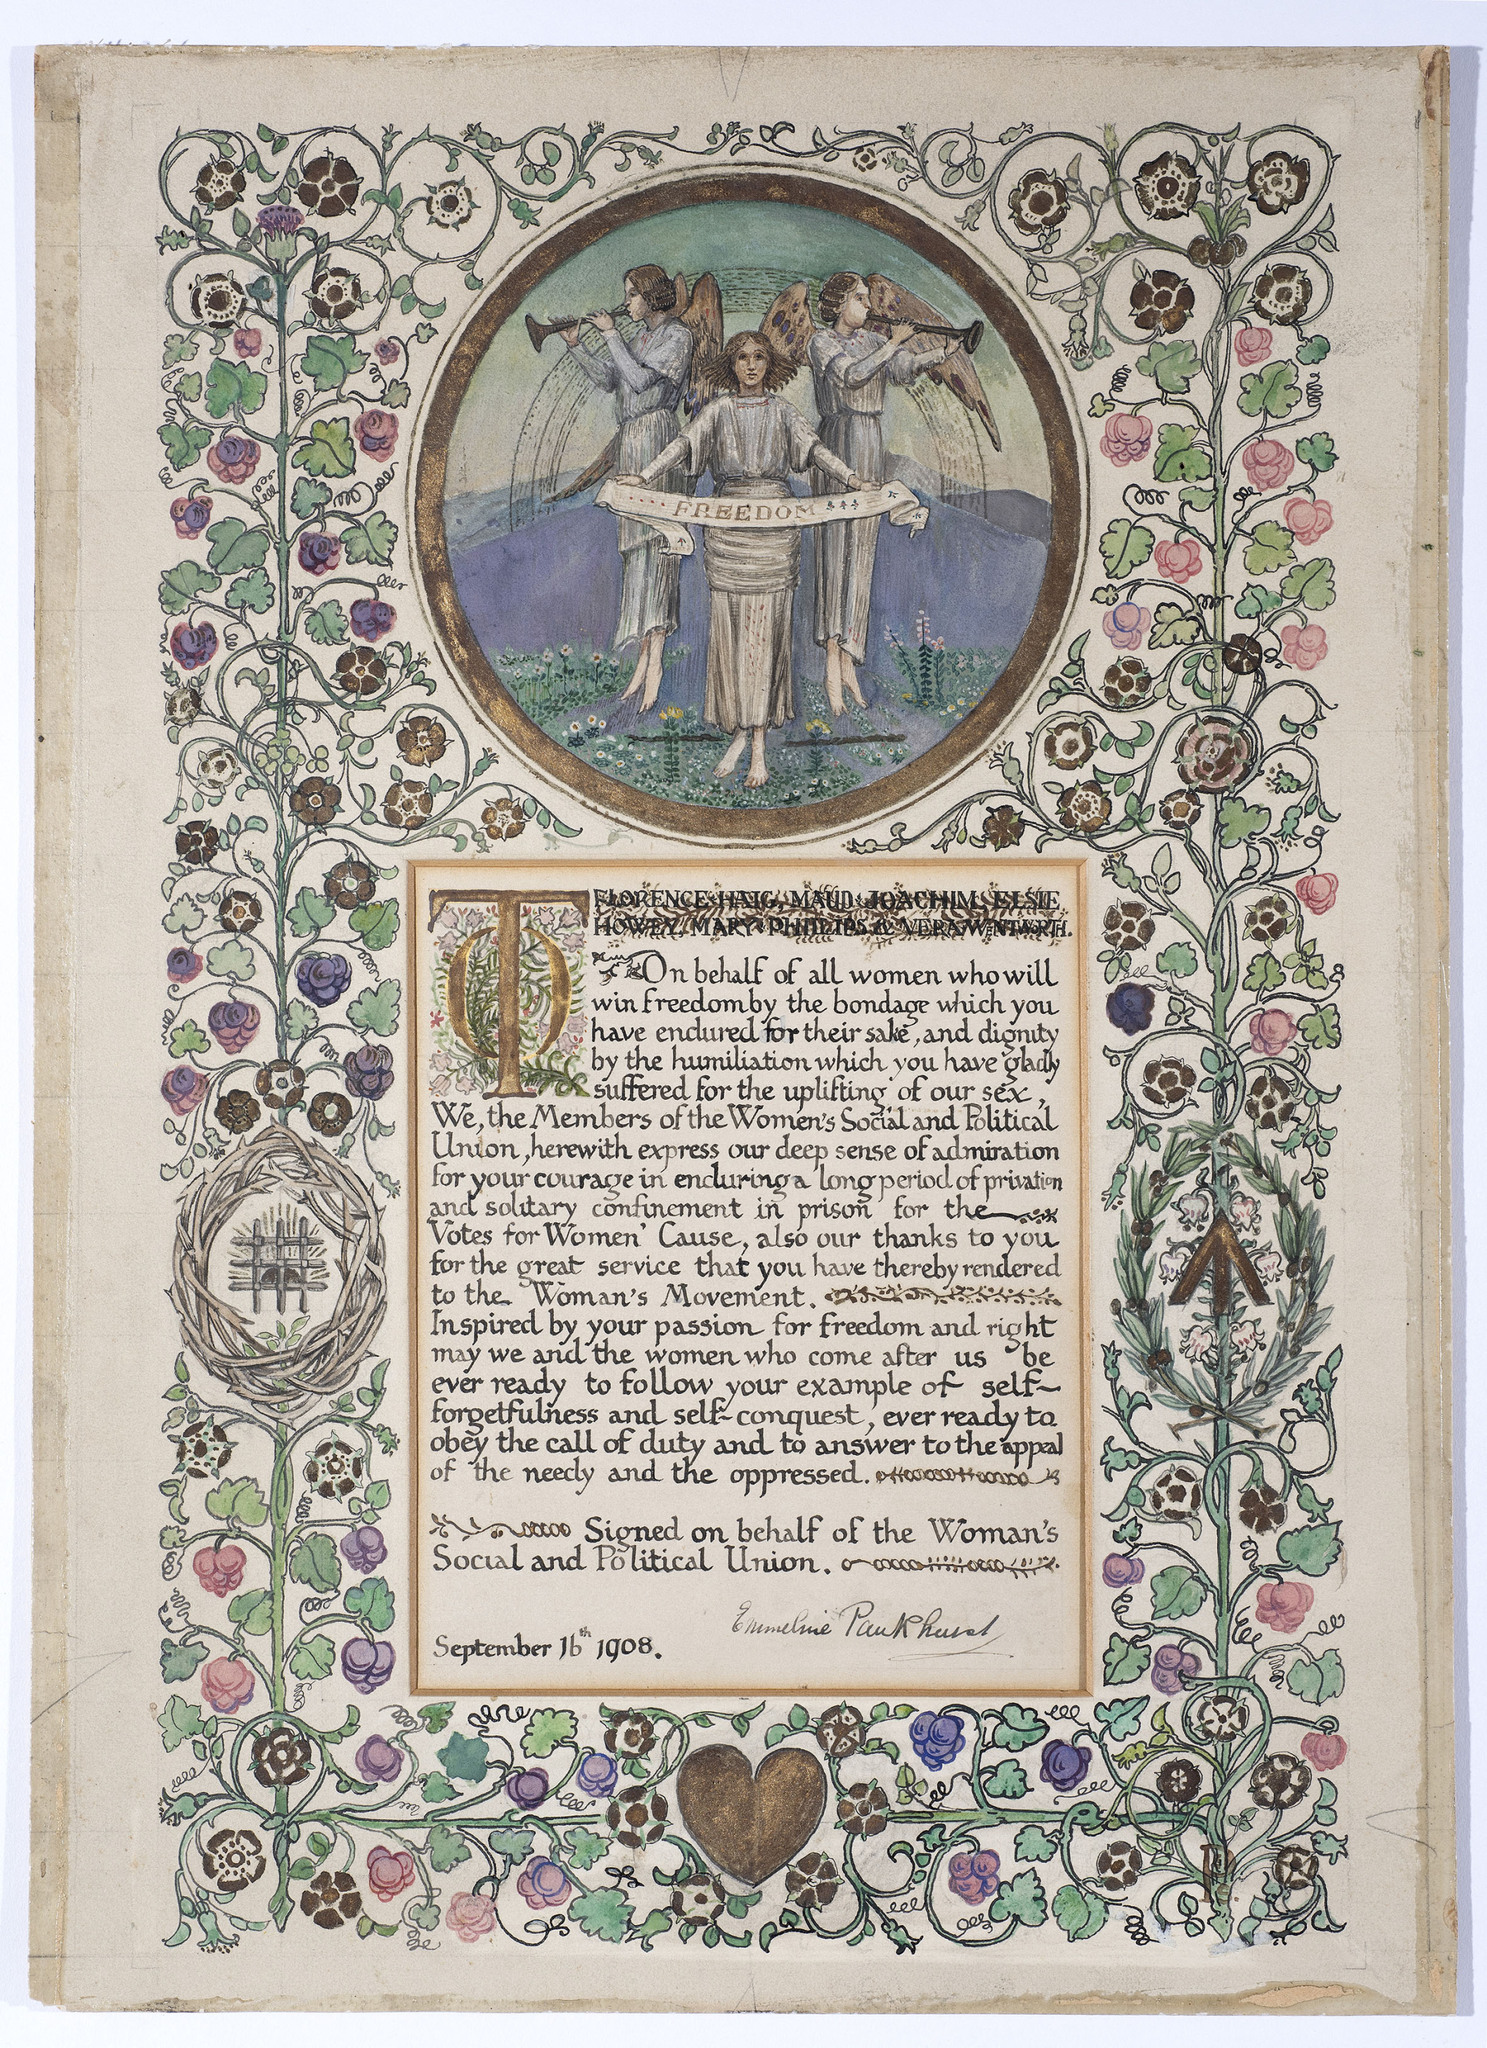 FREEDOM
TO FLORENCE HAIG, MAUD JOACHIM, ELSIE
HOWEY, MARY PHILLIPS & VERA WENTWORTH.
On behalf of all women who will
win freedom by the bondage which you
have endured for their sake, and dignity
by the humiliation which you have gladly
suffered for the uplifting of our sex,
We, the Members of the Women's Social and Political
Union, herewith express our deep sense of admiration
for your courage in enduring a long period of privation
and solitary confinement in prison for the
Votes for Women' Cause, also our thanks to you
for the great service that you have thereby rendered
to the Woman's Movement.
Inspired by your passion for freedom and right
may we and the women who come after us be
ever ready to follow your example of self-
forgetfulness and self-conquest, ever ready to
obey the call of duty and to answer to the appeal
of the needy and the oppressed.
Signed on behalf of the Woman's
Social and Political Union.
Emmeline Pankhurst
September 16th 1908.